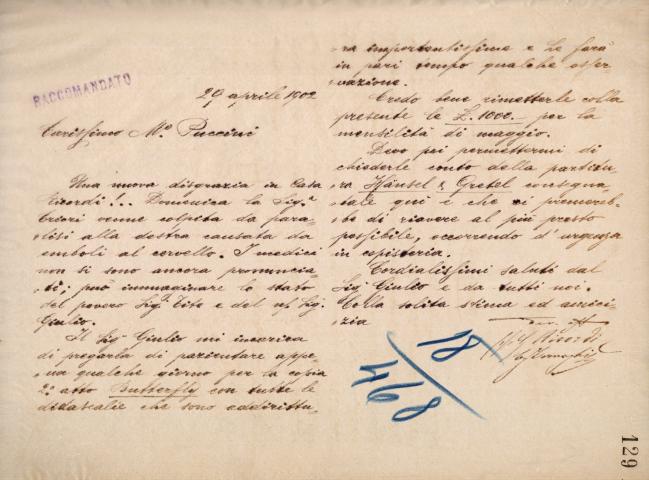 RACCOMANDATO
29 aprile 1902
Carissimo Mo. Puccini
Una nuova disgrazia in Casa
Ricordi!.. Domenica la Sig.a
venne colpita da para=
lisi alla destra causata da
emboli al cervello. I medici
non si sono ancora pronuncia=
ti; può immaginare lo stato
del povero Sig. Tito e del Sig.
Giulio.
Il Sig Giulio mi incarica
di pregarla di pazientare appe=
na qualche giorno per la copia
2o. atto Butterfly con tutte le
didascalie che sono addirittu=
ra importantissime e Le farà
in pari tempo qualche osser=
vazione.
Credo bene rimetterle colla
presente le L. 1000.- per la
mensilità di maggio.
Devo poi permettermi di
chiederle conto della partitu=
ra Hänsel & Gretel consegna=
tale qui e che ci premereb=
be di riavere al più presto
possibile, occorrendo d'urgenza
in copisteria.
Cordialissimi saluti dal
Sig Giulio e da tutti noi.
Colla solita stima ed amici=
zia
Ricordi
18/468
129